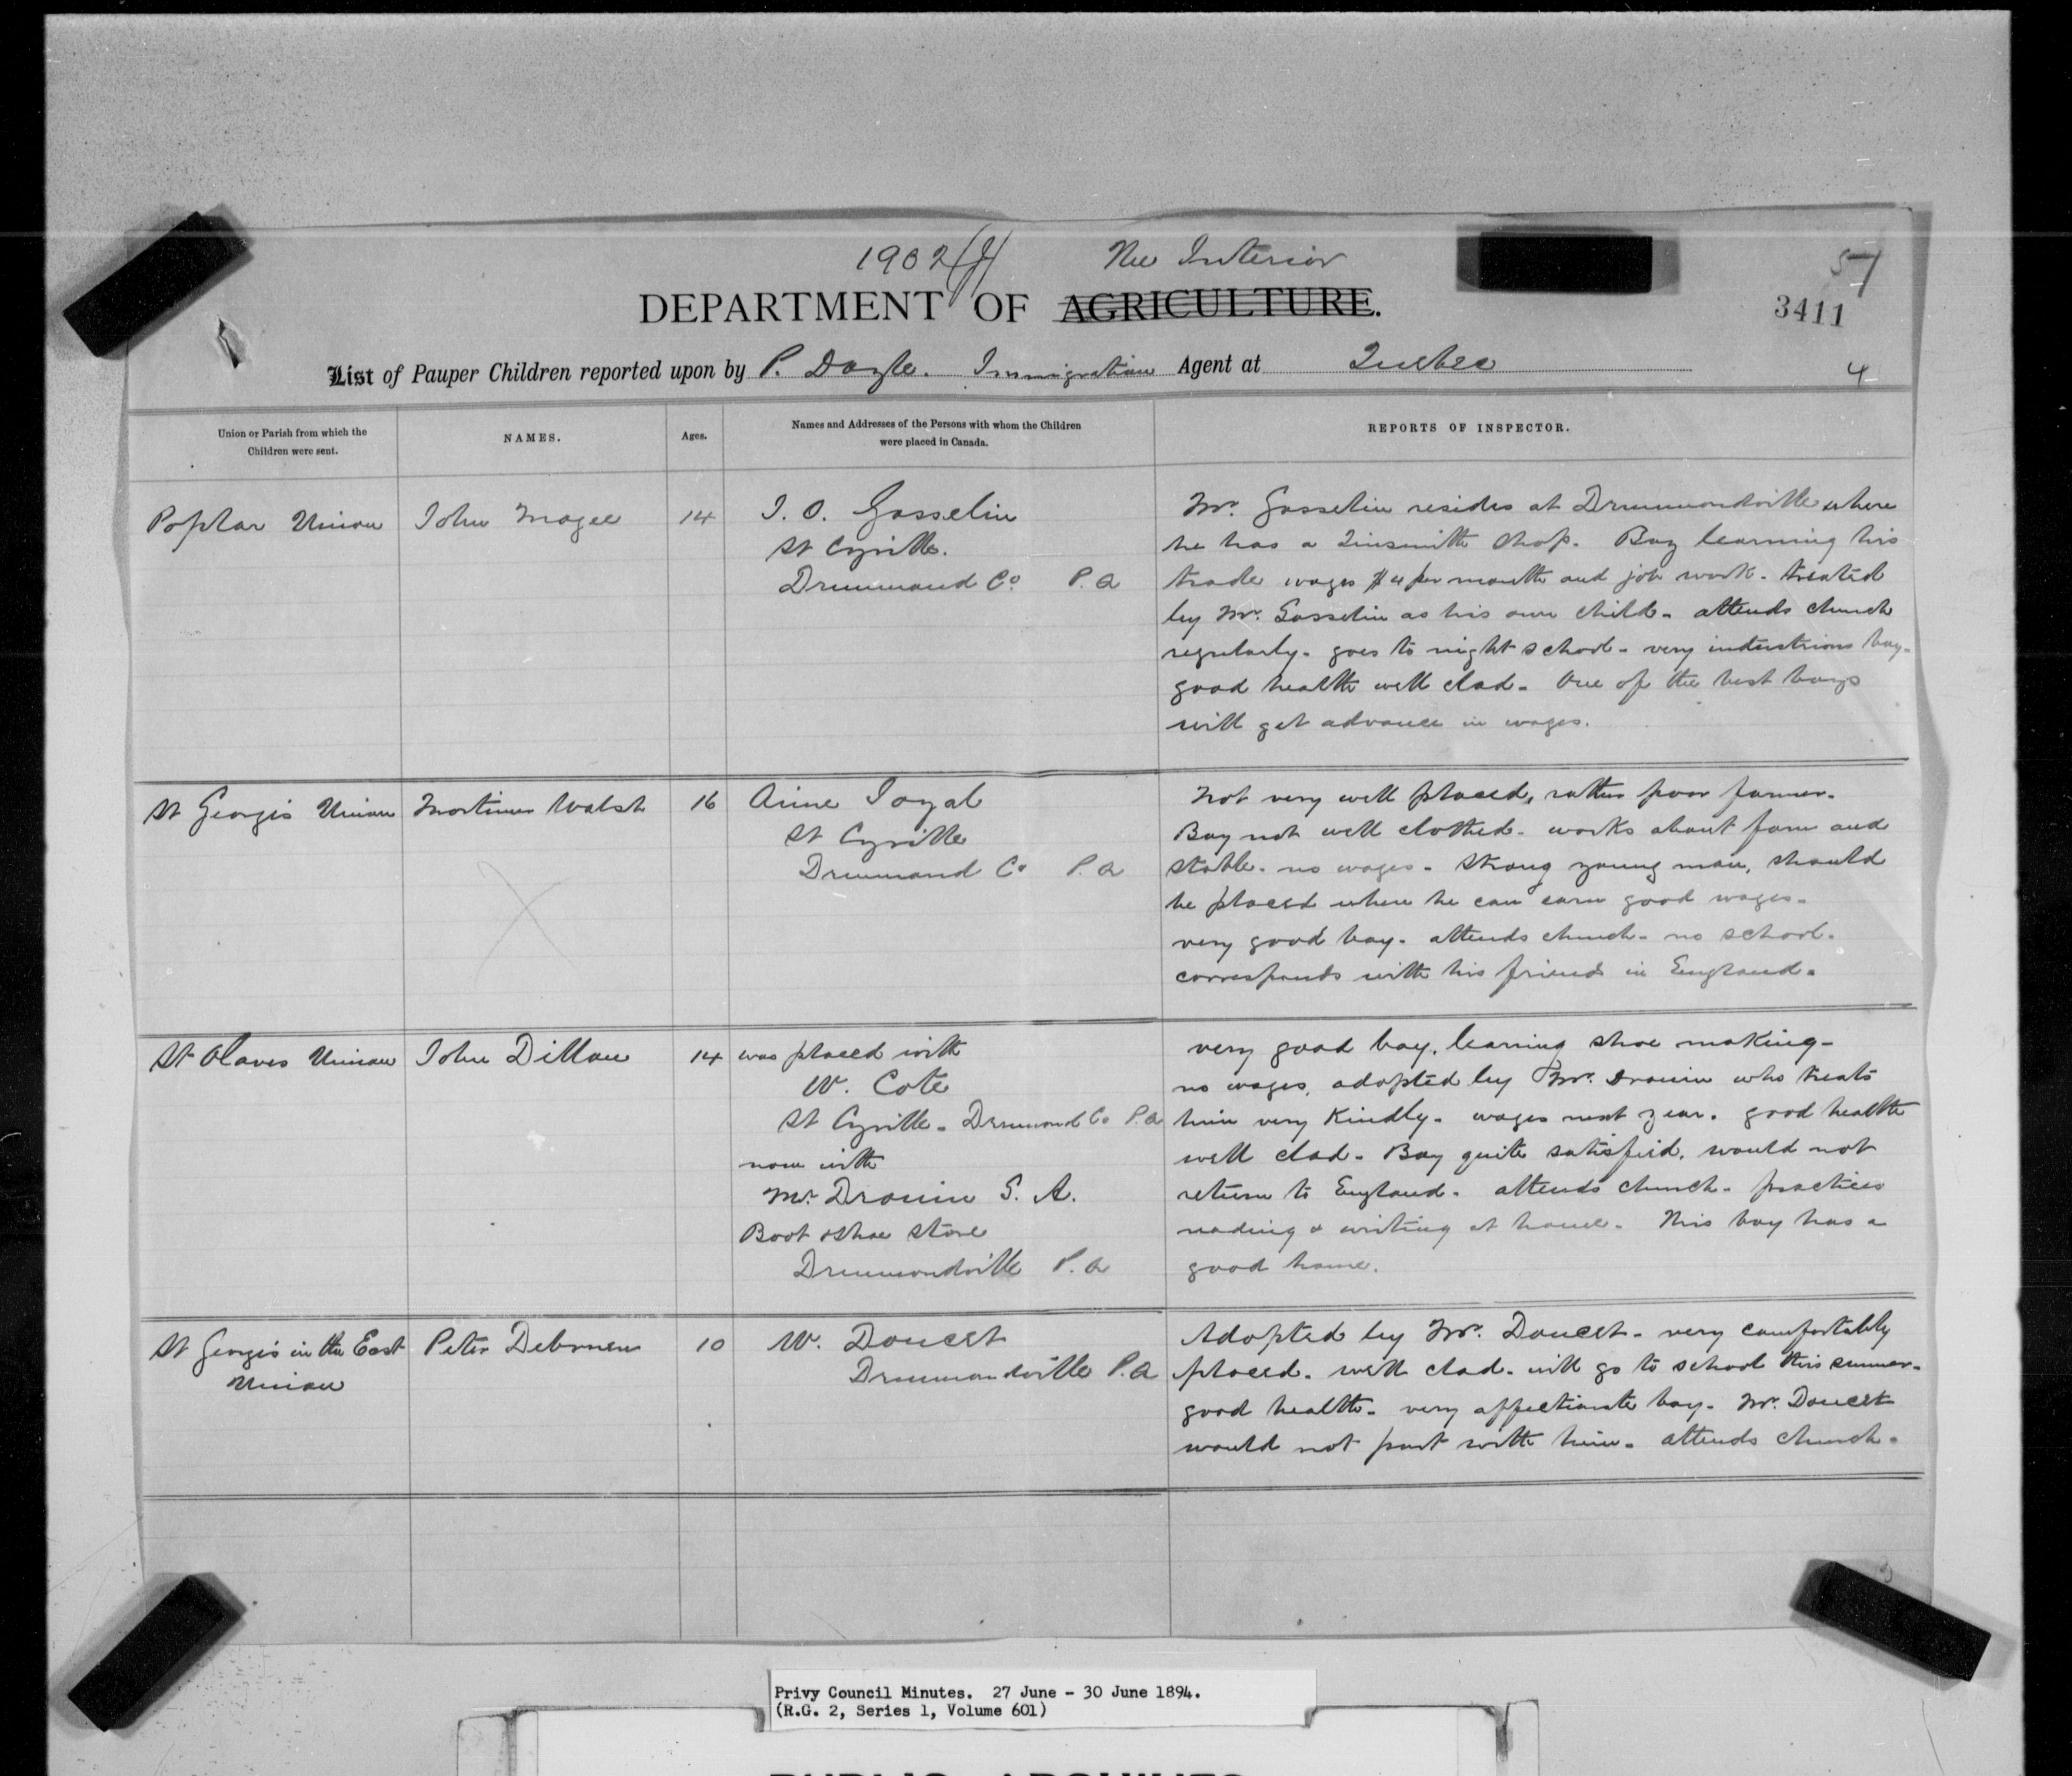 1902 (J) The Interior
57
DEPARTMENT OF AGRICULTURE.
3411
List of Pauper Children reported upon by P. Doyle. Immigration Agent at Quebec
4
Union or Parish from which the
Children were sent.
NAMES.
Ages.
Names and Addresses of the Persons with whom the Children
were placed in Canada.
REPORTS OF INSPECTOR.
Poplar Union
John Magee
14
J. O. Gosselin
St Cyrille.
Drummond Co. P.Q
Mr. Gosselin resides at Drummondville where
he has a Tinsmith shop. Boy learning his
trade wages $4 per month and job work. treated
by Mr. Gosselin as his own child. attends church
regularly. goes to night school. very industrious boy.
good health well clad. One of the best boys
will get advance in wages.
St Georges Union
Mortimer Walsh
16
Aime Joyal
St Cyrille
Drummond Co P.Q
Not very well placed, rather poor farmer.
Boy not well clothed. works about farm and
stable. no wages. Strong young man, should
be placed where he can earn good wages.
very good boy. attends church. no school.
corresponds with his friends in England.
St Olaves Union
John Dillon
14
was placed with
W. Cote
St Cyrille. Drummond Co P.Q
now with
Mr. Drouin S. A.
Boot & Shoe Store
Drummondville P.Q
very good boy, learning shoe making.
no wages, adopted by Mr. Drouin who treats
him very kindly. wages next year. good health
well clad. Boy quite satisfied, would not
return to England. attends church. practices
reading & writing at home. This boy has a
good home.
St Georges in the East
Union
Peter
10
W. Doucet
Drummondville P.Q
Adopted by Mr. Doucet. very comfortably
placed. well clad. will go to school this summer.
good health. very affectionate boy. Mr. Doucet
would not part with him. attends church.
Privy Council Minutes. 27 June - 30 June 1894.
(R.G. 2, Series 1, Volume 601)
PUBLIC ARCHIVES